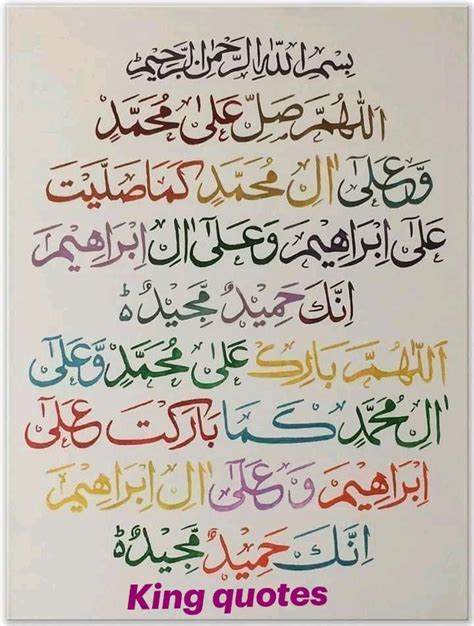 بسم الله الرحمن الرحيم
اَللّٰهُمَّ صَلِّ عَلٰى مُحَمَّدٍ
وَّعَلٰٓى اٰلِ مُحَمَّدٍ كَمَا صَلَّيْتَ
عَلٰٓى اِبْرَاهِيْمَ وَعَلٰٓى اٰلِ اِبْرَاهِيْمَ
اِنَّكَ حَمِيْدٌ مَّجِيْدٌ ؕ
اَللّٰهُمَّ بَارِكْ عَلٰى مُحَمَّدٍ وَّعَلٰٓى
اٰلِ مُحَمَّدٍ كَمَا بَارَكْتَ عَلٰٓى
اِبْرَاهِيْمَ وَعَلٰٓى اٰلِ اِبْرَاهِيْمَ
اِنَّكَ حَمِيْدٌ مَّجِيْدٌ ؕ
King quotes